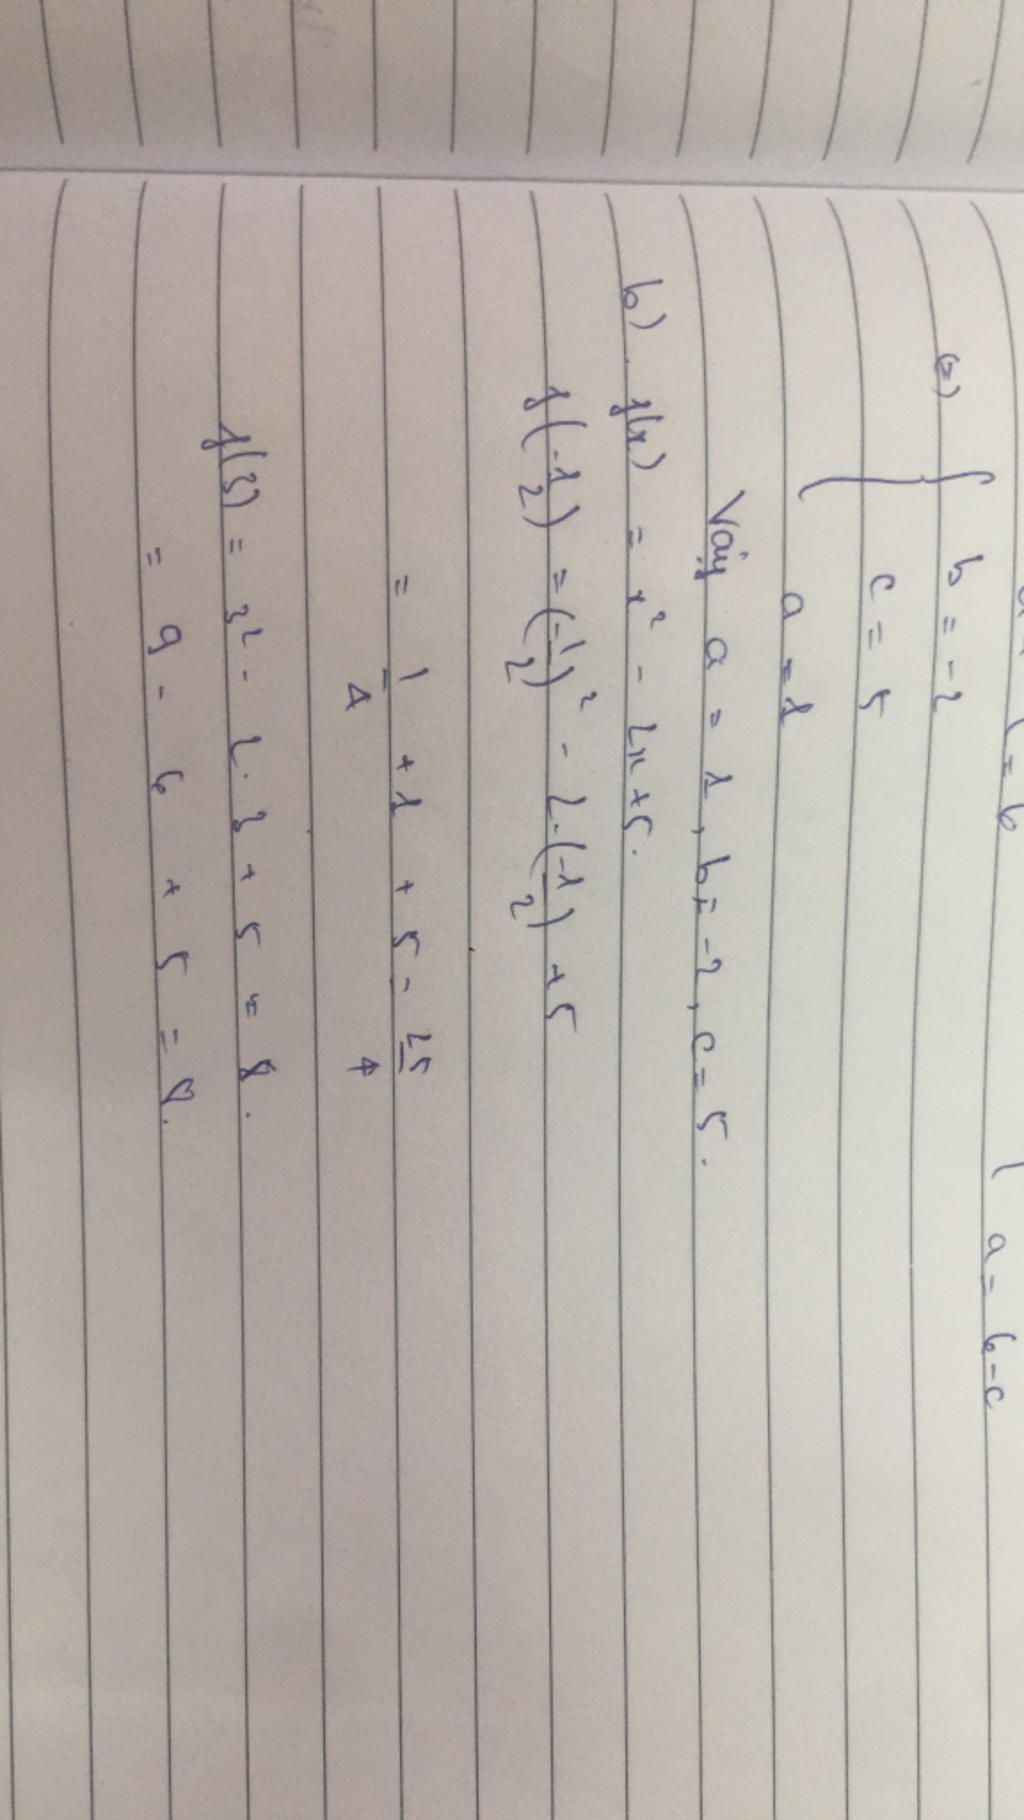 a = 6 - c
⇔ { b = -2
c = 5
a = 1
Vậy a = 1, b = -2, c = 5.
b) f(x) = x² - 2x + 5.
f(-1/2) = (-1/2)² - 2.(-1/2) + 5
= 1/4 + 1 + 5 = 25/4
f(3) = 3² - 2.3 + 5 = 8.
= 9 - 6 + 5 = 8.